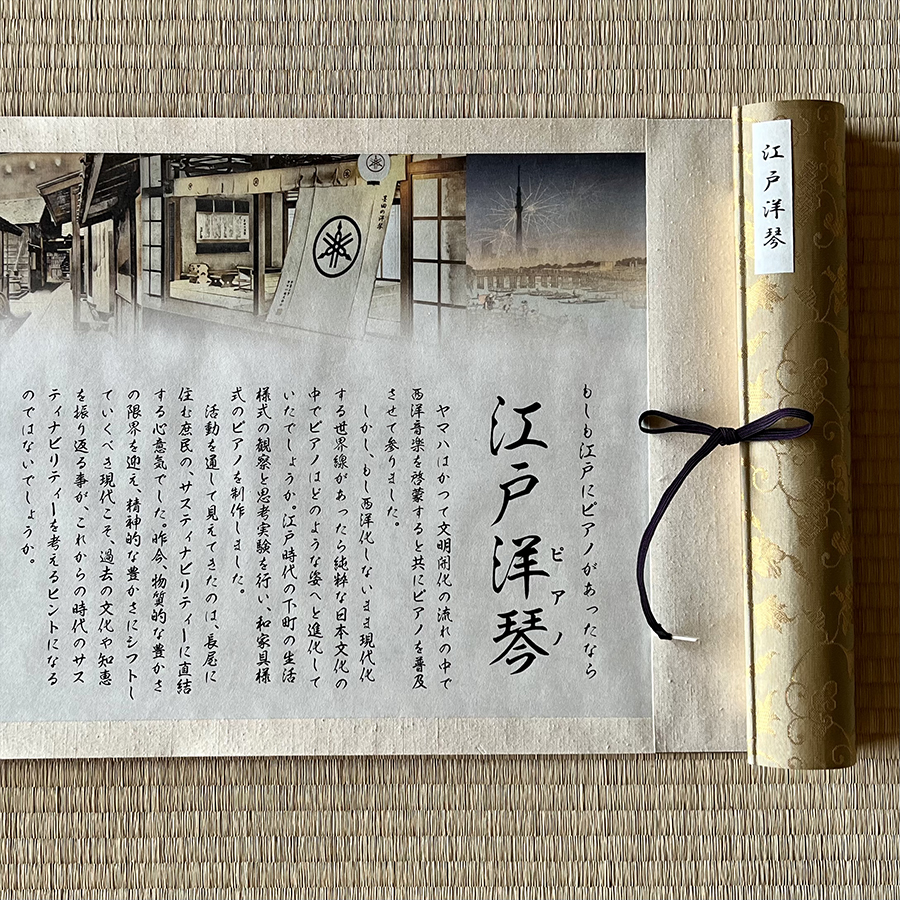 江戸洋琴
もしも江戸にピアノがあったなら
江戸洋琴
ピアノ
ヤマハはかつて文明開化の流れの中で
西洋音楽を啓蒙すると共にピアノを普及
させて参りました。
しかし、もし西洋化しないまま現代化
する世界線があったら純粋な日本文化の
中でピアノはどのような姿へと進化して
いたでしょうか。江戸時代の下町の生活
様式の観察と思考実験を行い、和家具様
式のピアノを制作しました。
活動を通して見えてきたのは、長屋に
住む庶民の、サスティナビリティーに直結
する心意気でした。昨今、物質的な豊かさ
の限界を迎え、精神的な豊かさにシフトし
ていくべき現代こそ、過去の文化や知恵
を振り返る事が、これからの時代のサス
ティナビリティーを考えるヒントになる
のではないでしょうか。